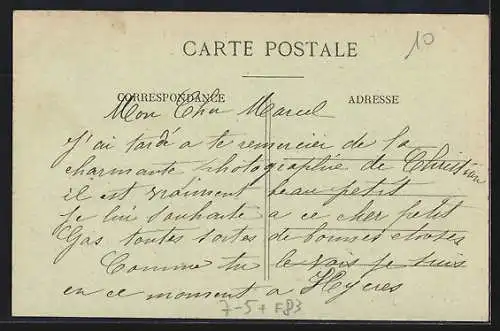 CARTE POSTALE
10
CORRESPONDANCE
ADRESSE
Mon Cher Marcel
J'ai tardé a te remercier de la
charmante photographie de Christian
il est vraiment beau petit
Je lui souhaite a ce cher petit
Gas toutes sortes de bonnes choses
Comme tu le vois je suis
en ce moment a Hyeres
7-5+ F83